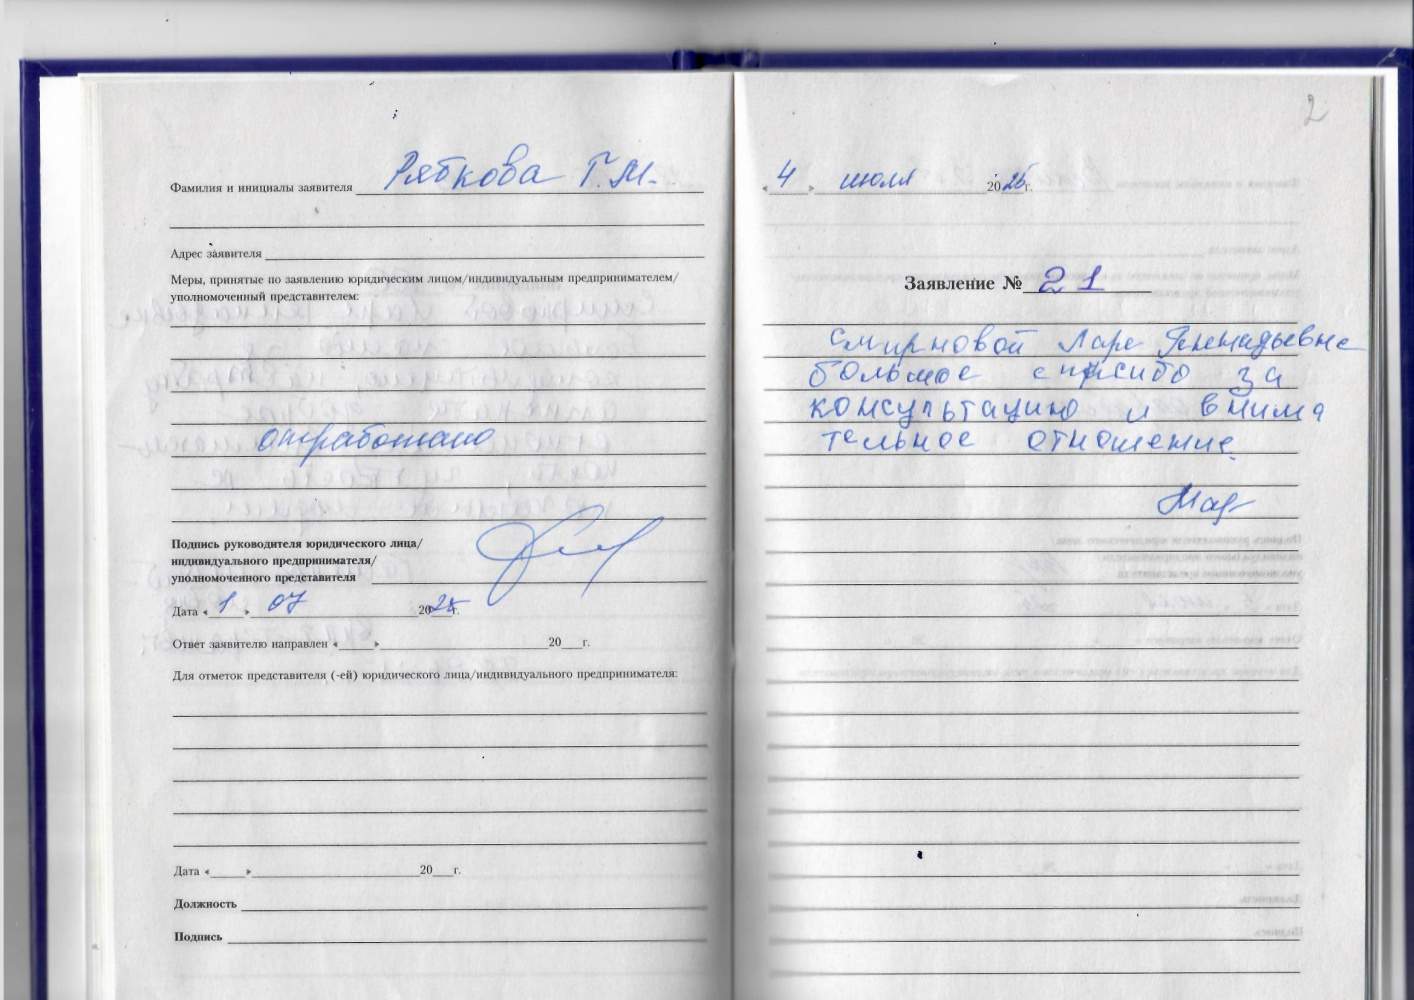 Фамилия и инициалы заявителя Рябкова Г.М.
Адрес заявителя
Меры, принятые по заявлению юридическим лицом/индивидуальным предпринимателем/
уполномоченный представителем:
отработано
Подпись руководителя юридического лица/
индивидуального предпринимателя/
уполномоченного представителя
Дата «1» 07 2025г.
Ответ заявителю направлен « » 20 г.
Для отметок представителя (-ей) юридического лица/индивидуального предпринимателя:
Дата « » 20 г.
Должность
Подпись
2
«4» июля 2025г.
Заявление № 21
Смирновой Ларе Геннадьевне
большое спасибо за
консультацию и внима
тельное отношение.